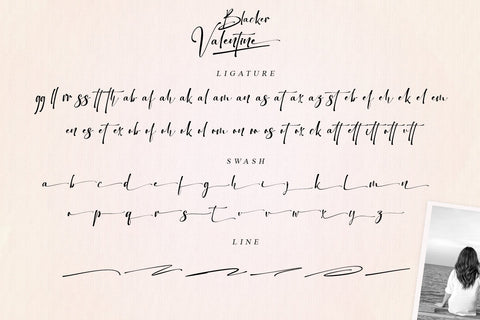 Blacker
Valentine
LIGATURE
gg ll rr ss tt th ab af ah ak al am an as at ax az st eb ef eh ek el em
en es et ex ob of oh ok ol om on ro os ot ox ck att ett itt ott utt
SWASH
a b c d e f g h i j k l m n
o p q r s t u v w x y z
LINE